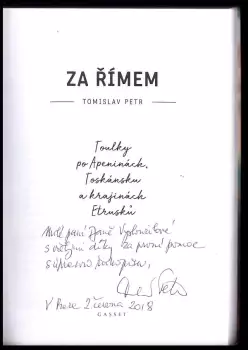 ZA ŘÍMEM
TOMISLAV PETR
Toulky
po Apeninách,
Toskánsku
a krajinách
Etrusků
Milé paní Janě
s velkými díky za první pomoc
s úpravou rukopisu,
V Praze 2. června 2018
GASSET